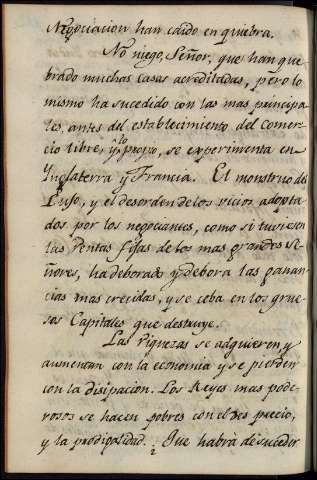 Negociacion han caido en quiebra.
No niego, Señor, que han que
brado muchas casas acreditadas, pero lo
mismo ha sucedido con las mas principa
les, antes del establecimiento del comer
cio libre, y lo propio, se experimenta en
Ynglaterra y Francia. El monstruo del
Luxo, y el desorden de los vicios adopta
dos por los negociantes, como si tuviesen
las Rentas fijas de los mas grandes Se
ñores, ha deborado y debora las ganan
cias mas crecidas, y se ceba en los grue
sos Capitales que destruye.
Las riquezas se adquieren, y
aumentan con la economia y se pierden
con la disipacion. Los Reyes mas pode
rosos se hacen pobres con el desprecio,
y la prodigalidad. ¿Que habrá de suceder